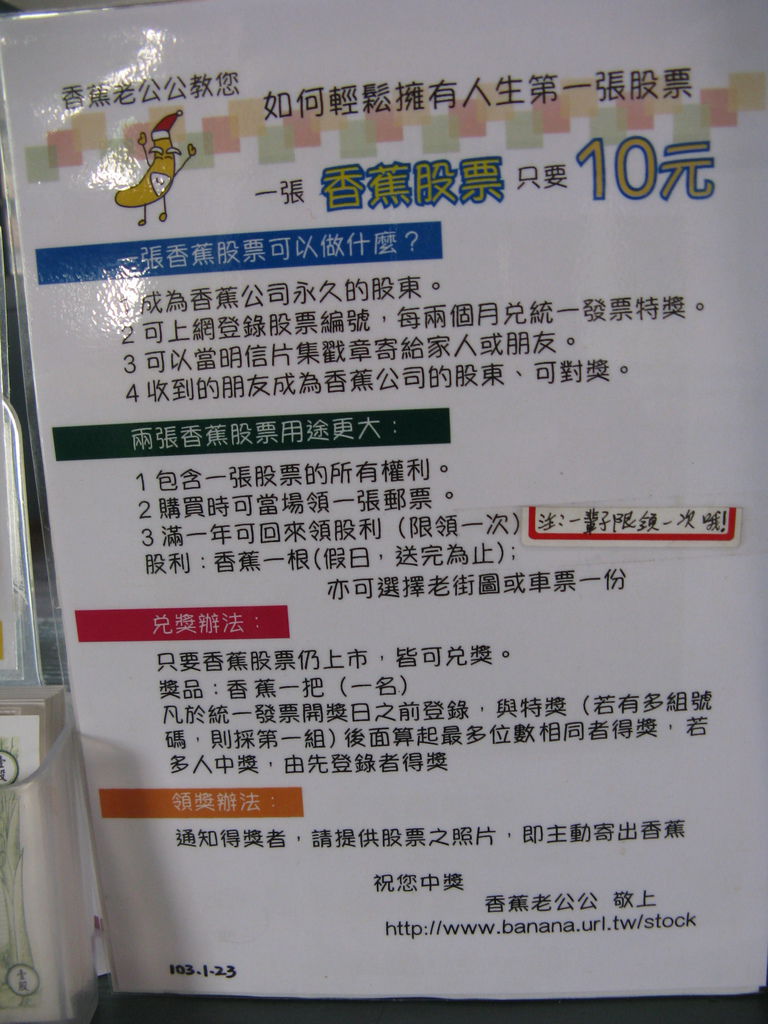 香蕉老公公教您
如何輕鬆擁有人生第一張股票
一張 香蕉股票 只要 10元
一張香蕉股票可以做什麼？
1 成為香蕉公司永久的股東。
2 可上網登錄股票編號，每兩個月兌統一發票特獎。
3 可以當明信片集戳章寄給家人或朋友。
4 收到的朋友成為香蕉公司的股東、可對獎。
兩張香蕉股票用途更大：
1 包含一張股票的所有權利。
2 購買時可當場領一張郵票。
3 滿一年可回來領股利（限領一次）
注:一輩子限領一次哦!
股利：香蕉一根(假日，送完為止)；
亦可選擇老街圖或車票一份
兌獎辦法：
只要香蕉股票仍上市，皆可兌獎。
獎品：香蕉一把（一名）
凡於統一發票開獎日之前登錄，與特獎（若有多組號
碼，則採第一組）後面算起最多位數相同者得獎，若
多人中獎，由先登錄者得獎
領獎辦法：
通知得獎者，請提供股票之照片，即主動寄出香蕉
祝您中獎
香蕉老公公 敬上
http://www.banana.url.tw/stock
103.1.23
壹股
壹股